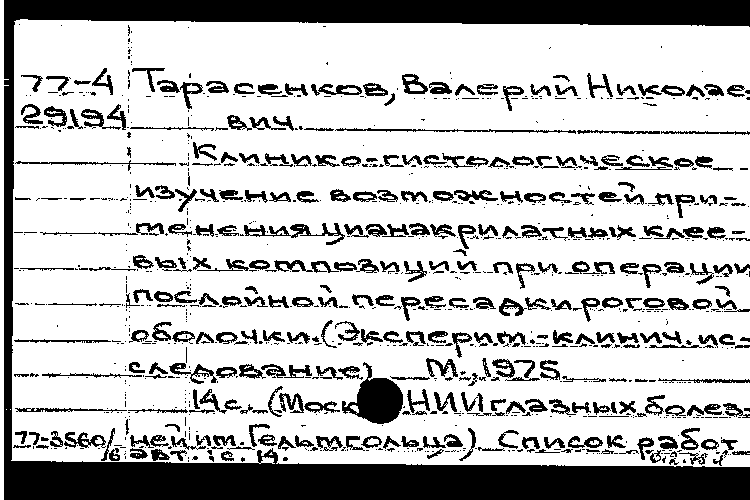 77-4 Тарасенков, Валерий Николае-
29194 вич.
Клинико-гистологическое
изучение возможностей при-
менения цианакрилатных клее-
вых композиций при операции
послойной пересадки роговой
оболочки. (Эксперим.-клинич. ис-
следование) М., 1975.
14 с. (Моск НИИ глазных болез-
77-3560/ ней им. Гельмгольца) Список работ
б авт.: с. 14.